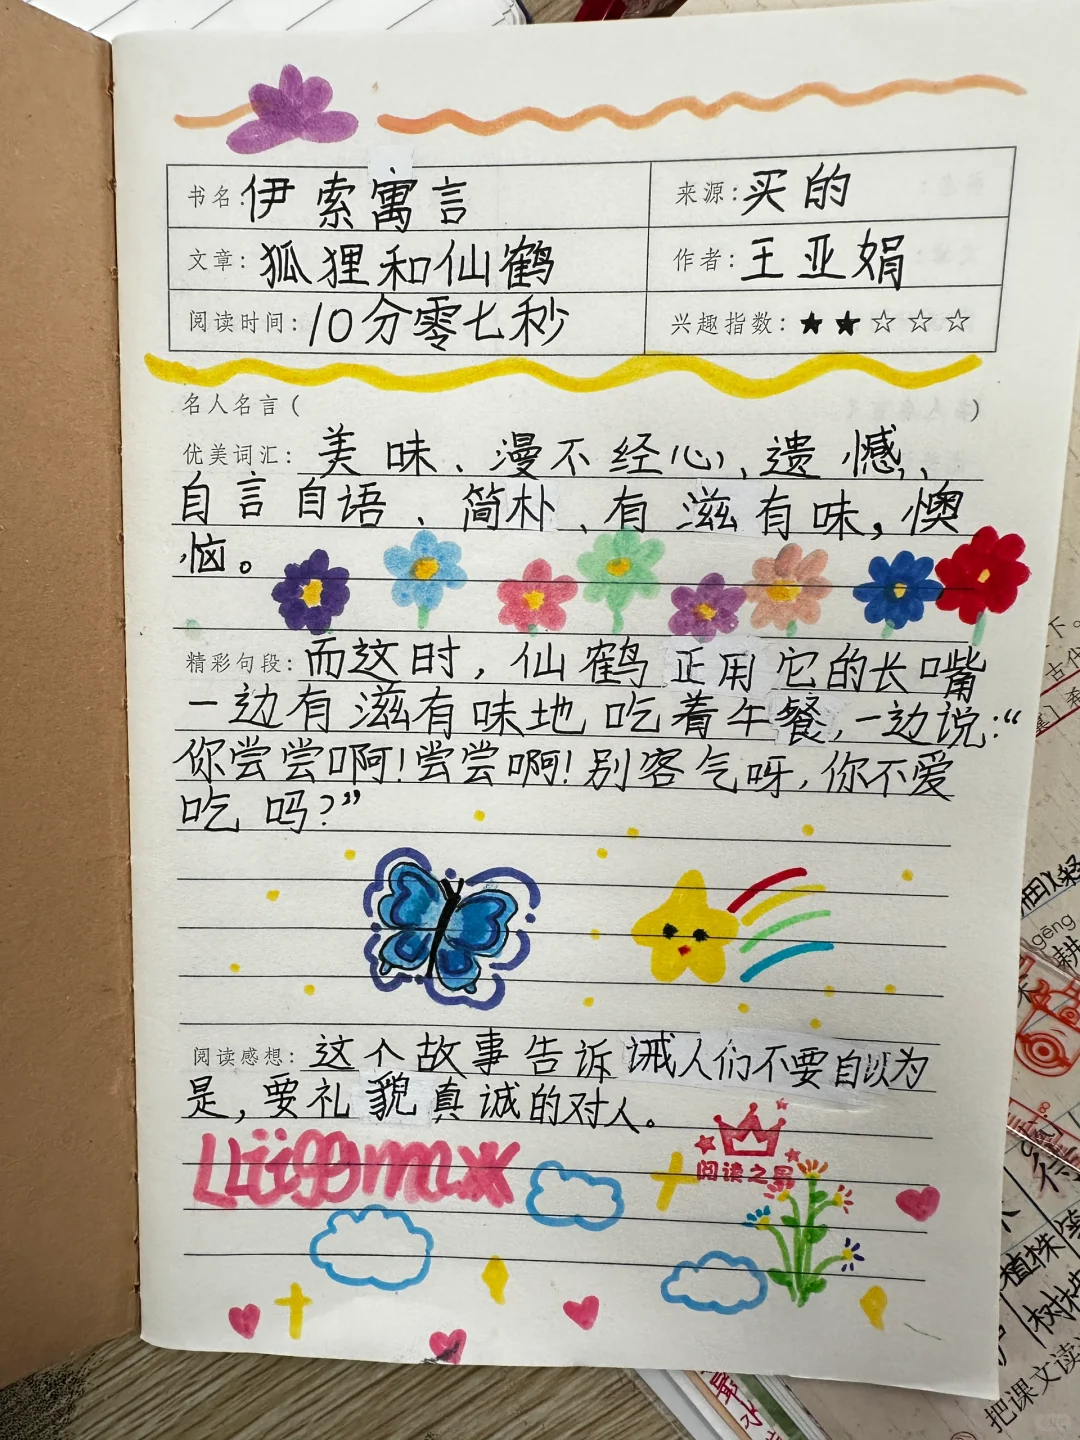 书名:伊索寓言 来源:买的
文章:狐狸和仙鹤 作者:王亚娟
阅读时间:10分零七秒 兴趣指数:★★☆☆☆
名人名言( )
优美词汇:美味、漫不经心、遗憾、
自言自语、简朴、有滋有味,懊
恼。
精彩句段:而这时,仙鹤正用它的长嘴
一边有滋有味地吃着午餐,一边说:“
你尝尝啊!尝尝啊!别客气呀,你不爱
吃吗?”
阅读感想:这个故事告诉诫人们不要自以为
是,要礼貌真诚的对人。
阅读之星
下。
古代
gēng
耕
植株
树
把课文读